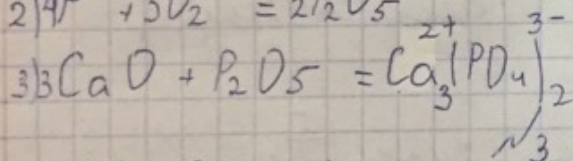 2) 4P + 5O₂ = 2P₂O₅
3) 3CaO + P₂O₅ = Ca₃²⁺(PO₄)₂³⁻
3